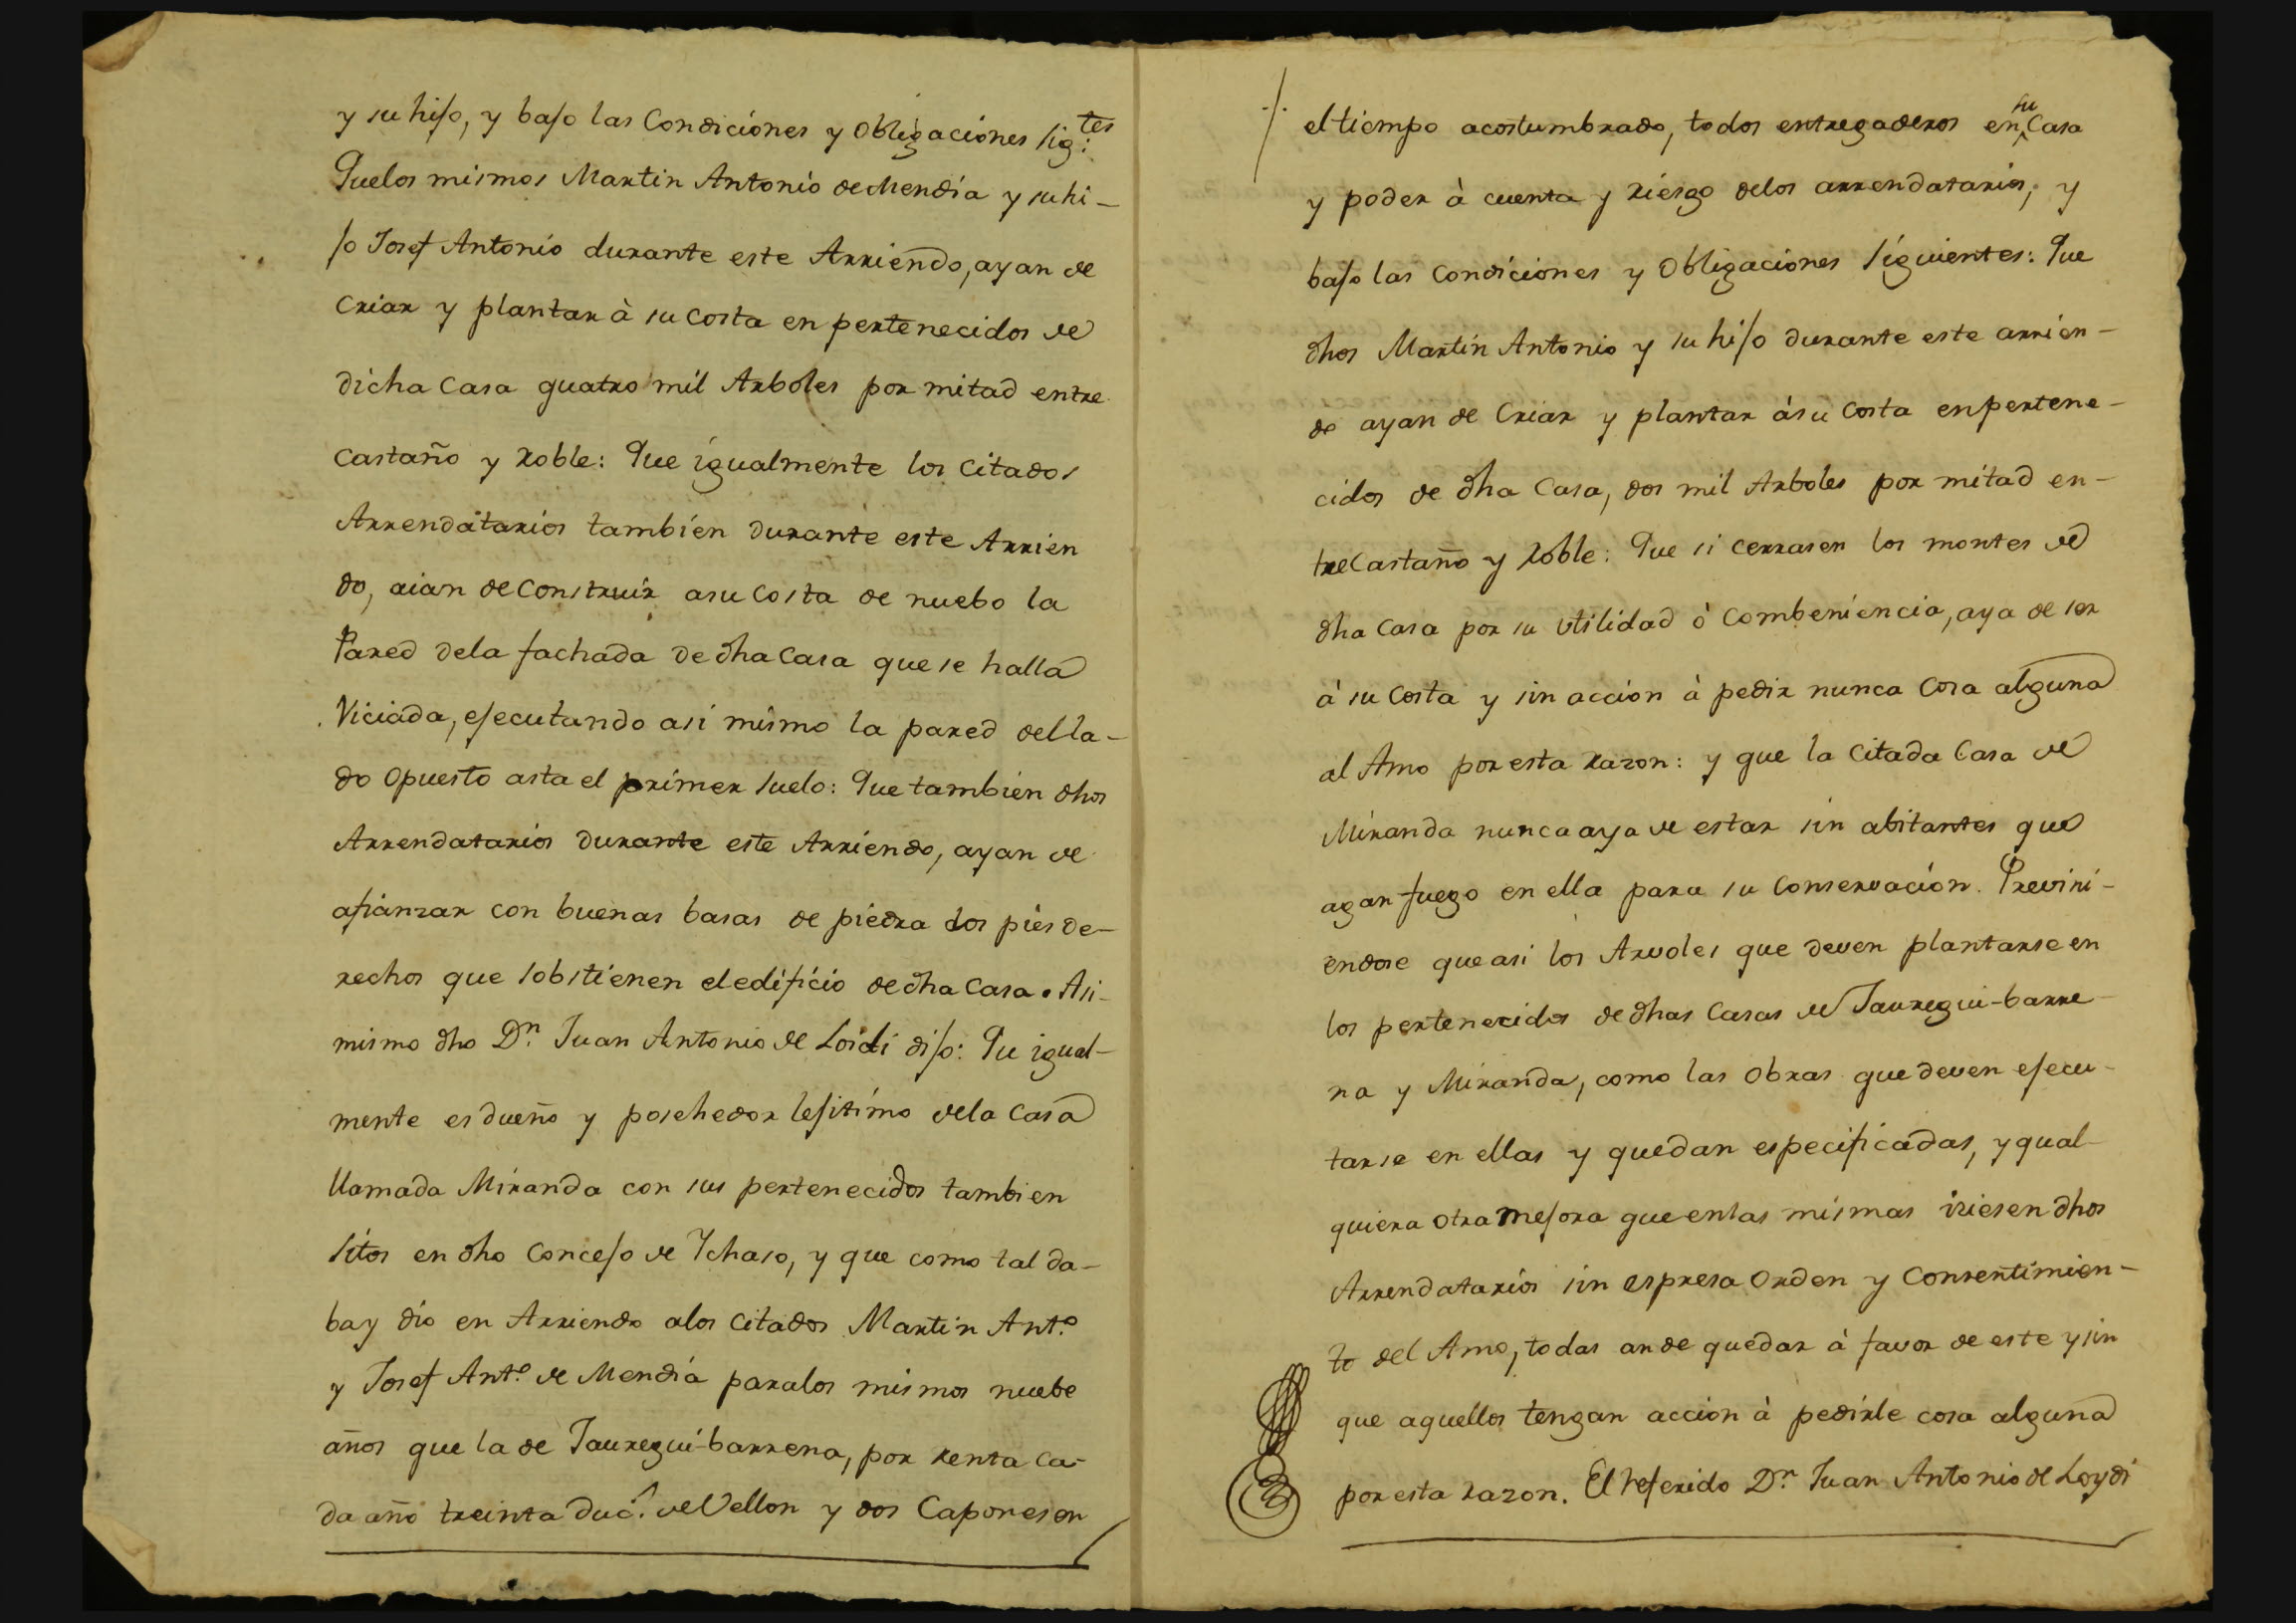 y su hijo, y bajo las Condiciones y Obligaciones sig.tes
Que los mismos Martin Antonio de Mendia y su hi-
jo Josef Antonio durante este Arriendo, ayan de
criar y plantar à su costa en pertenecidos de
dicha Casa quatro mil Arboles por mitad entre
castaño y roble: Que igualmente los citados
Arrendatarios tambien durante este Arrien
do, aian de Construir asu Costa de nuebo la
Pared dela fachada de dha Casa que se halla
Viciada, ejecutando asi mismo la pared del la-
do opuesto asta el primer suelo: Que tambien dhos
Arrendatarios durante este Arriendo, ayan de
afianzar con buenas basas de piedra los pies de-
rechos que sobstienen el edificio de dha Casa. Asi-
mismo dho Dn. Juan Antonio de Loidi dijo: Qu igual-
mente es dueño y posehedor lejitimo dela Casa
llamada Miranda con sus pertenecidos tambien
sitos en dho Concejo de Ychaso, y que como tal da-
ba y dio en Arriendo alos citados Martin Anto.
y Josef Anto. de Mendia paralos mismos nuebe
años que la de Jauregui-barrena, por renta ca-
da año treinta duc.s de Vellon y dos Capones en
el tiempo acostumbrado, todos entregaderos en su Casa
y poder à cuenta y riesgo delos arrendatarios, y
bajo las condiciones y Obligaciones siguientes: Que
dhos Martin Antonio y su hijo durante este arrien-
do ayan de Criar y plantar àsu Costa en pertene-
cidos de dha Casa, dos mil Arboles por mitad en-
tre Castaño y Roble: Que si cerrasen los montes de
dha Casa por su utilidad ò Combeniencia, aya de ser
à su Costa y sin accion à pedir nunca Cosa alguna
al Amo por esta razon: y que la Citada Casa de
Miranda nunca aya de estar sin abitantes que
agan fuego en ella para su Conservacion. Previni-
endose que asi los Arvoles que deven plantarse en
los pertenecidos de dhas Casas de Jauregui-barre-
na y Miranda, como las Obras que deven ejecu-
tarse en ellas y quedan especificadas, y qual-
quiera otra mejora que en las mismas iciesen dhos
Arrendatarios sin espresa Orden y Consentimien-
to del Amo, todas an de quedar à favor de este y sin
que aquellos tengan accion à pedirle cosa alguna
por esta razon. El referido Dn. Juan Antonio de Loydi